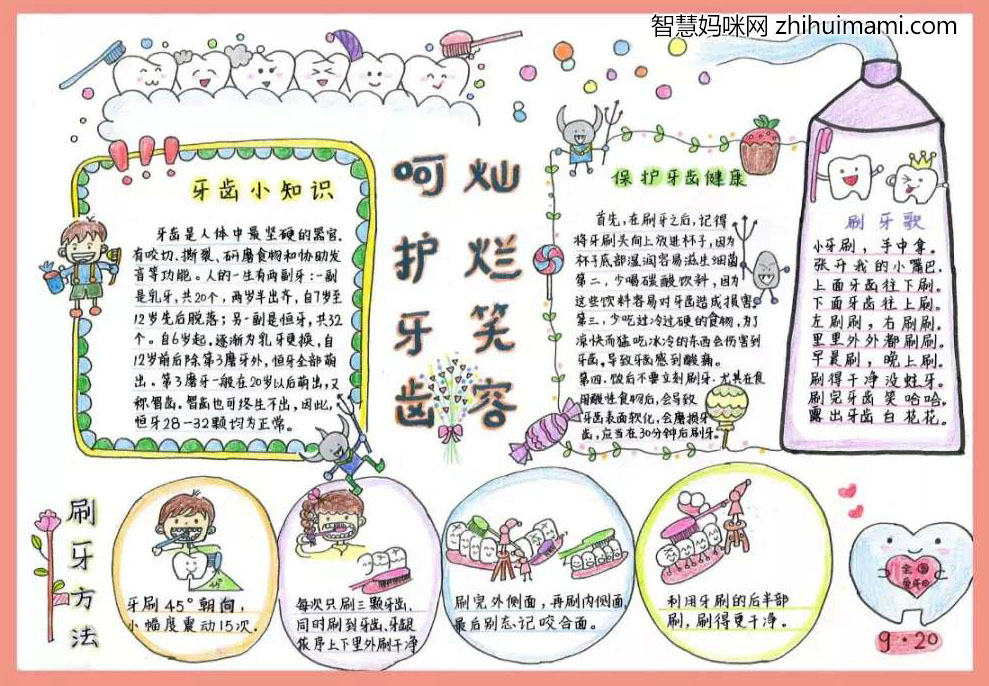 智慧妈咪网 zhihuimami.com
呵护牙齿
灿烂笑容
牙齿小知识
牙齿是人体中最坚硬的器官.
有咬切、撕裂、研磨食物和协助发
音等功能。人的一生有两副牙:一副
是乳牙,共20个,两岁半出齐,自7岁至
12岁先后脱落;另一副是恒牙,共32
个。自6岁起,逐渐为乳牙更换,自
12岁前后除第3磨牙外,恒牙全部萌
出。第3磨牙一般在20岁以后萌出,又
称智齿。智齿也可终生不出,因此,
恒牙28-32颗均为正常。
保护牙齿健康
首先,在刷牙之后,记得
将牙刷头向上放进杯子,因为
杯子底部湿润容易滋生细菌
第二,少喝碳酸饮料,因为
这些饮料容易对牙齿造成损害。
第三,少吃过冷过硬的食物,为了
凉快而猛吃冰冷的东西会伤害到
牙齿,导致牙齿感到酸痛。
第四,饭后不要立刻刷牙.尤其在食
用酸性食物后,会导致
牙齿表面软化,会磨损牙
齿,应当在30分钟后刷牙。
刷牙歌
小牙刷,手中拿。
张开我的小嘴巴。
上面牙齿往下刷。
下面牙齿往上刷。
左刷刷,右刷刷。
里里外外都刷刷。
早晨刷,晚上刷。
刷得干净没蛀牙。
刷完牙齿笑哈哈。
露出牙齿白花花。
刷牙方法
45°
牙刷45°朝向,
小幅度震动15次.
每次只刷三颗牙齿,
同时刷到牙齿、牙龈
依序上下里外刷干净
刷完外侧面,再刷内侧面
最后别忘记咬合面。
利用牙刷的后半部
刷,刷得更干净。
全国
爱牙日
9·20